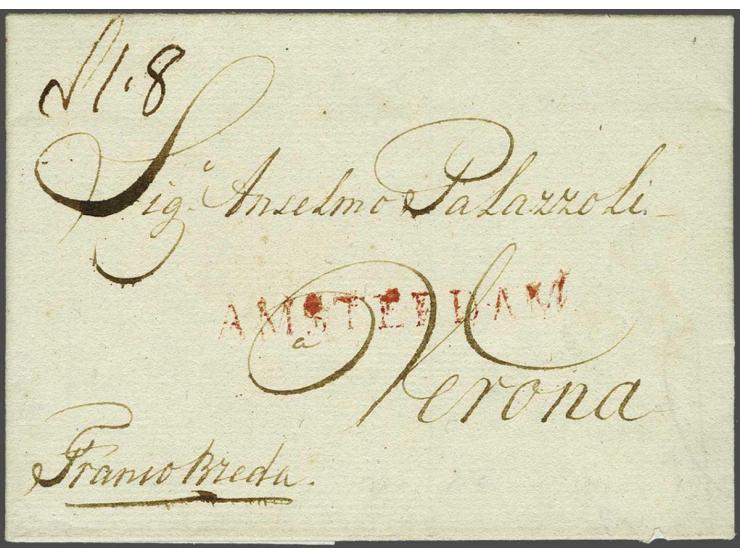 1.8
Sig.r Anselmo Palazzoli.
AMSTERDAM
a
Verona
Franco Breda.